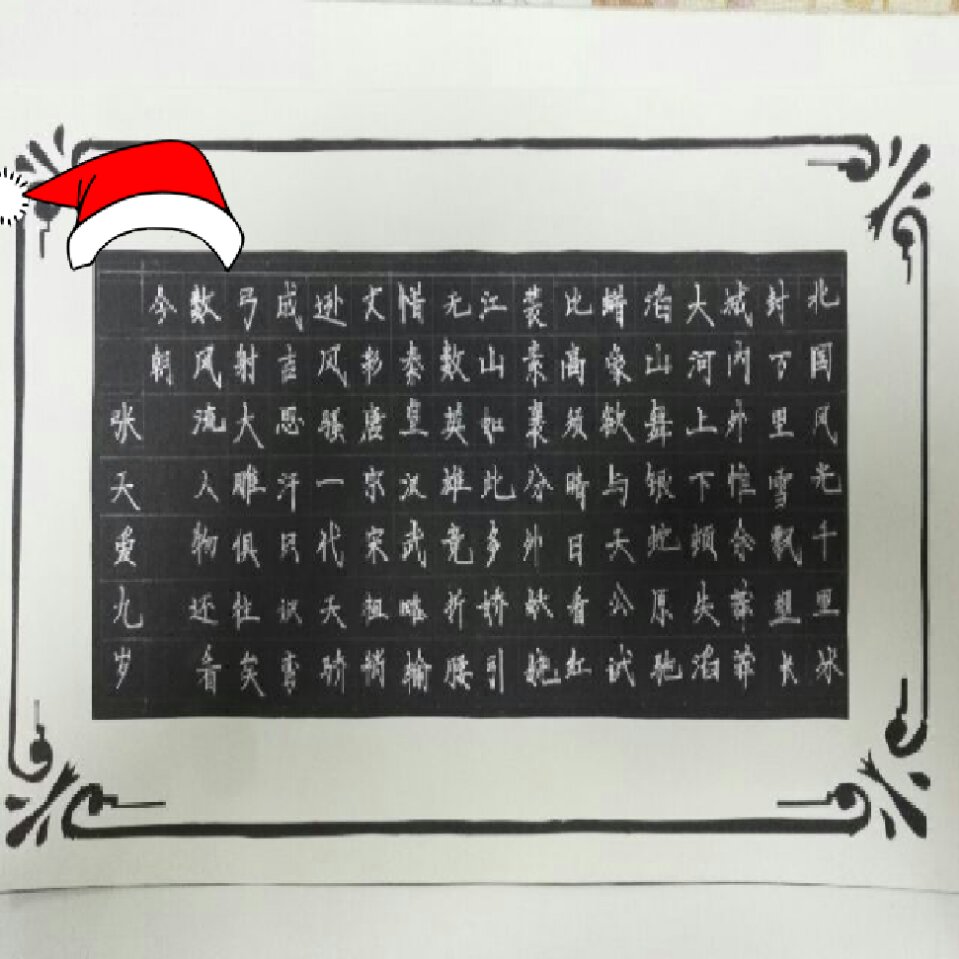 北国风光千里冰
封万里雪飘望长
城内外惟余莽莽
大河上下顿失滔
滔山舞银蛇原驰
蜡象欲与天公试
比高须晴日看红
装素裹分外妖娆
江山如此多娇引
无数英雄竞折腰
惜秦皇汉武略输
文彩唐宗宋祖稍
逊风骚一代天骄
成吉思汗只识弯
弓射大雕俱往矣
数风流人物还看
今朝
张天爱九岁